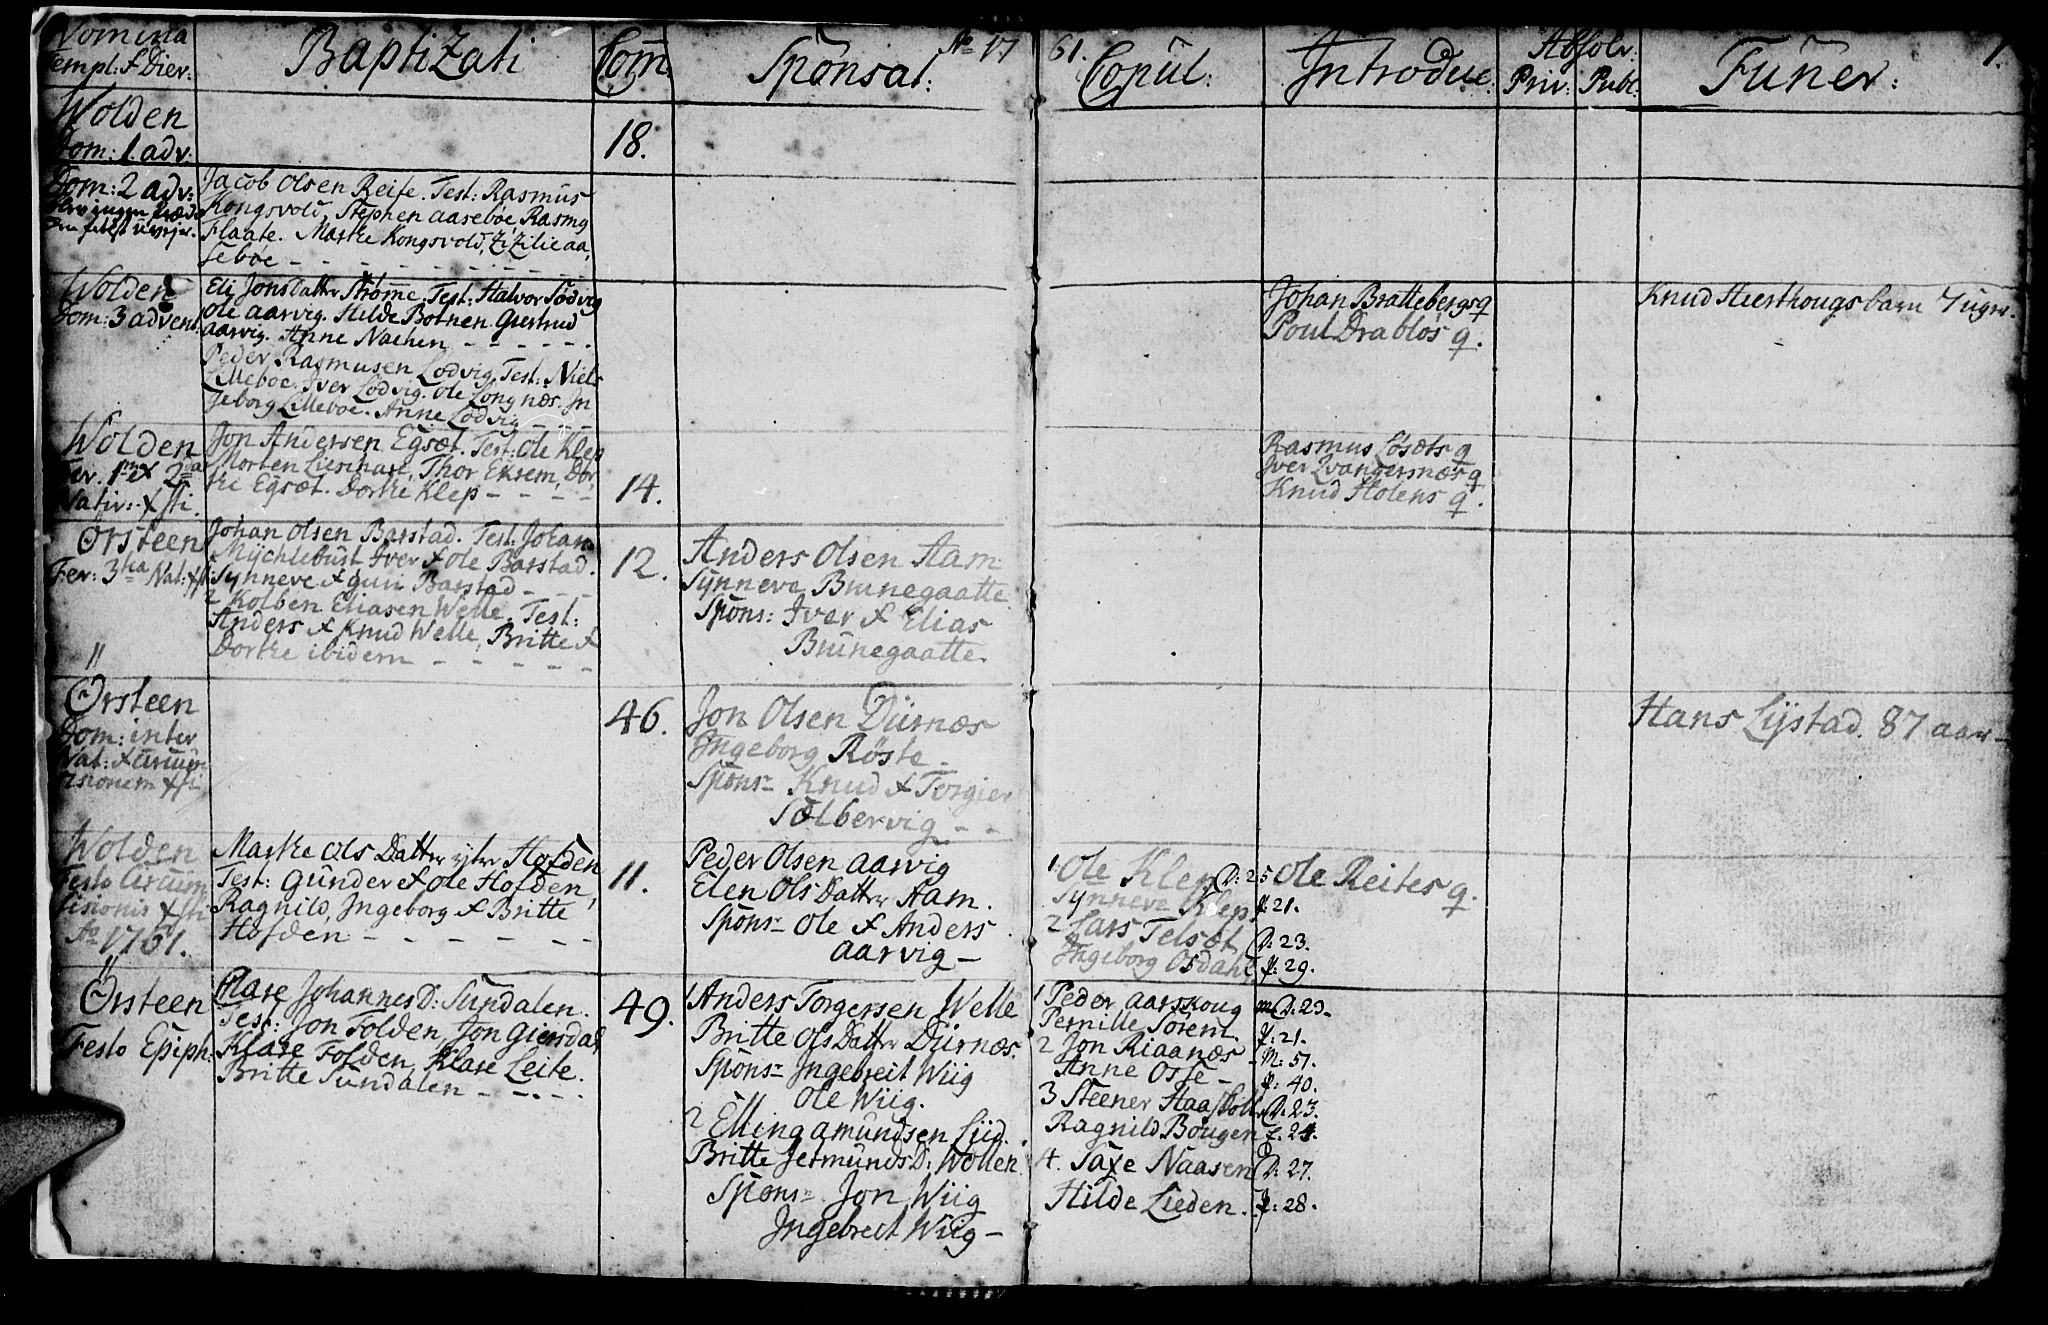 Nomina
Templ: & Dier:
Baptizati
Com
Sponsal:
Ao 17
61.
Copul:
Introduc:
Absolv:
Priv: Publ:
Funer:
1.
Wolden
Dom: 1. adv:
18.
Dom: 2 adv:
Jacob Olsen Reite. Test: Rasmus
Kongsvold, Stephen aaseboe, Rasmg
Flaate. Marthe Kongsvold, Zizilie aa,
seboe
Wolden
Dom: 3 advent:
Eli Jonsdatter Strøme. Test: Halvor Lødvig
Ole aarvig. Hilde Botnen. Giertrud
aarvig. Anne Nachen
Peder Rasmusen Lødvig. Test: Niels
Lilleboe. Iver Lødvig. Ole Longnæs. In,
geborg Lilleboe. Anne Lødvig
Johan Brattebergs q
Poul Drabløs q.
Knud Heerhougs barn 7 uger.
Wolden
Fer. 1ma & 2da
Nativ: Xsti.
Jon Andersen Egsæt. Test: Ole Klep
Morten Lienhare, Thor Eksem, Dor,
the Egsæt. Dorthe Klep
14.
Rasmus Løsæts q
Iver Qvangersnæs q
Knud Holens q.
Ørsteen
Fer: 3tia Nat: Xsti
Johan Olsen Barstad. Test: Johan
Mychlebust Iver & Ole Barstad.
Synneve & guri Barstad
2 Kolben Eliasen Welle. Test:
Anders & Knud Welle, Britte &
Dorthe ibidem
12.
Anders Olsen Aam
Synneve Brunegaatte.
Spons: Iver & Elias
Brunegaatte.
"
Ørsteen
Dom: inter
Nat: & Circum
cisionem Xsti
46.
Jon Olsen Diirnæs
Ingeborg Røste
Spons: Knud & Torgier
Sølbervig
Hans Lystad. 87 aar
Wolden
Festo Circum
cisionis Xsti
Ao 1761.
Marthe Ols Datter ytre Hofden
Test: Gunder & Ole Hofden,
Ragnild, Ingeborg & Britte
Hofden
11.
Peder Olsen aarvig
Elen Ols Datter Aam.
Spons: Ole & Anders
aarvig
1 Ole Klep D: 25
Synneve Klep P: 21.
2 Lars Telsæt D: 23.
Ingeborg Osdahl P: 29.
Ole Reites q.
"
Ørsteen
Festo Epiph:
Klare Johannes D: Sundalen.
Test: Jon Folden, Jon Giersdal
Klare Folden, Klare Leite.
Britte Sundalen
49.
1 Anders Torgersen Welle
Britte Ols Datter Diirnæs.
Spons: Ingebrect Wiig
Ole Wiig.
2 Elling amundsen Liid.
Britte Jermunds D: Wollen
Spons: Jon Wiig
Ingebrect Wiig
1 Peder aarskoug D: 23.
Pernille Sørem. P: 21.
2 Jon Riaanæs M: 51.
Anne Osse P: 40.
3 Steener D: 23.
Ragnild Bougen 24.
4. Saxe Naasen D: 27.
Hilde Lieden. P: 28.